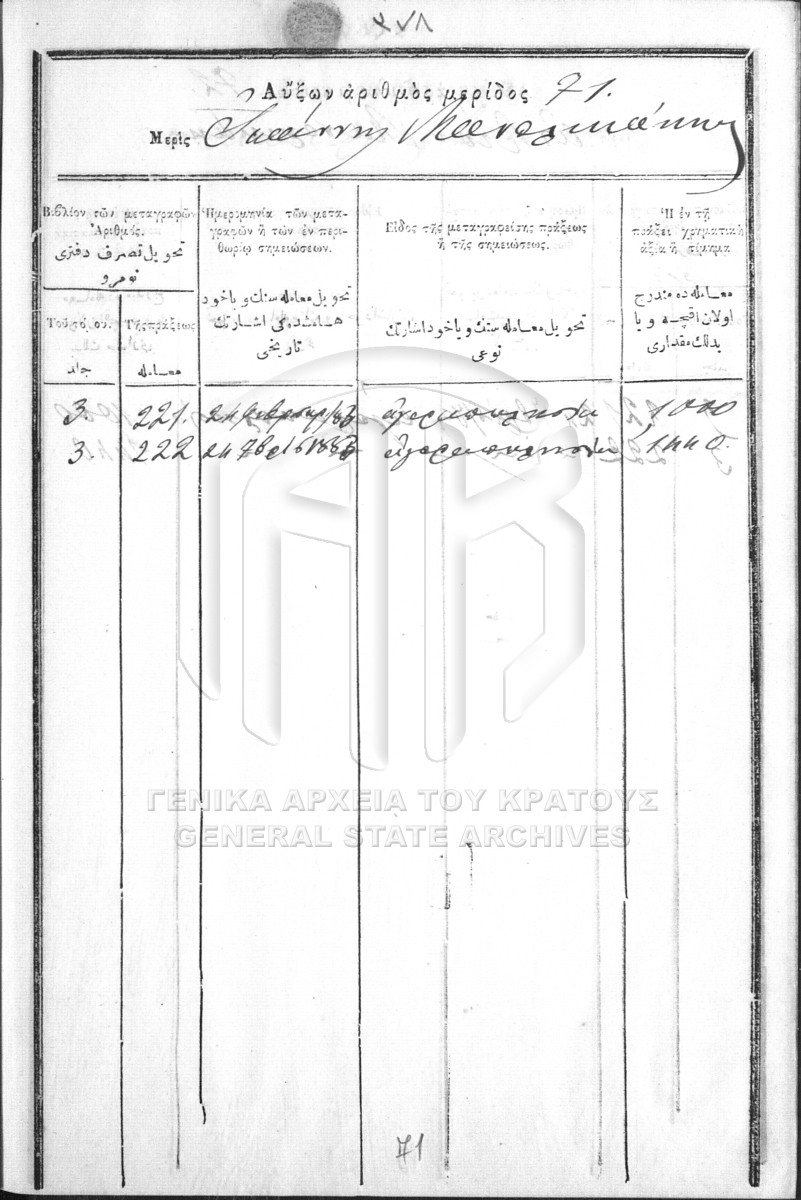 Αὔξων ἀριθμὸς μερίδος 71.
Μερὶς Ἰωάννης
Βιβλίον τῶν μεταγραφῶν
Ἀριθμός.
تحويل تصرف دفترى
نومرو
Τοῦ τόμου.
جلد
Τῆς πράξεως
معامله
Ἡμερομηνία τῶν μετα-
γραφῶν ἢ τῶν ἐν περι-
θωρίῳ σημειώσεων.
تحويل معامله سنك وياخود
هامشده كى اشارتك
تاريخى
Εἶδος τῆς μεταγραφείσης πράξεως
ἢ τῆς σημειώσεως.
تحويل معامله سنك وياخود اشارتك
نوعى
Ἡ ἐν τῇ
πράξει χρηματικὴ
ἀξία ἢ τίμημα
معامله ده مندرج
اولان اقچه و يا
بدلك مقدارى
3. 221. ἀγοραπωλησία 1000
3. 222 24 7βρίου 1883 ἀγοραπωλησία 1440.
ΓΕΝΙΚΑ ΑΡΧΕΙΑ ΤΟΥ ΚΡΑΤΟΥΣ
GENERAL STATE ARCHIVES
71